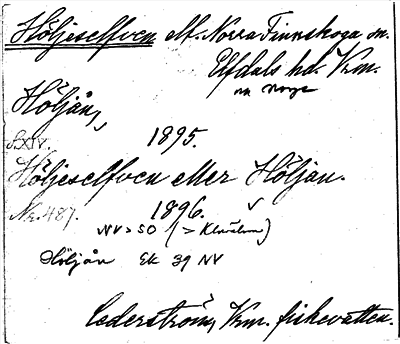 Höljeselfven elf. Norra Finnskoga sn.
Elfdals hd. Vrm.
nu Norge
Höljån,
S. XIV. 1895.
Höljeselfven eller Höljan.
Nr. 487. 1896.
NV > SO (> Klarälven)
Höljån Ek 39 NV
Cederström, Vrm. fiskevatten.